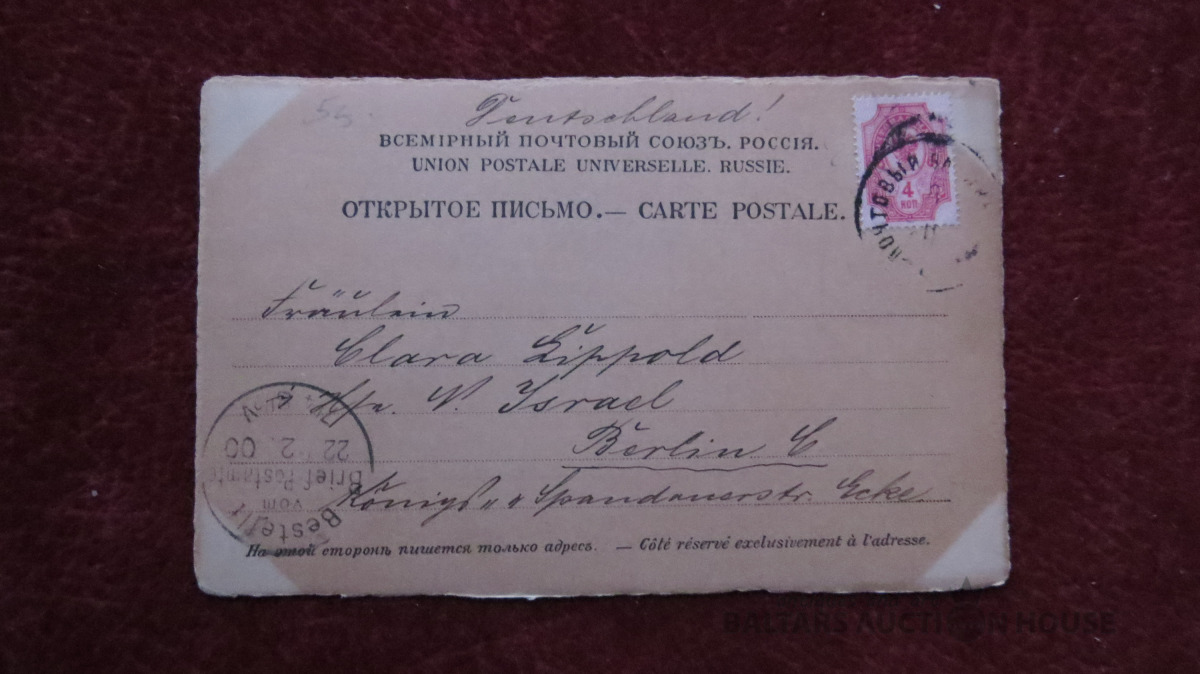 55.
Deutschland!
ВСЕМІРНЫЙ ПОЧТОВЫЙ СОЮЗЪ. РОССІЯ.
UNION POSTALE UNIVERSELLE. RUSSIE.
ОТКРЫТОЕ ПИСЬМО.— CARTE POSTALE.
4
КОП
ПОЧТОВЫЙ
Fräulein
Clara Lippold
N. Israel
Berlin C
Königs u. Spandauerstr. Ecke
Bestellt
vom
Brief-Postamte
22 2. 00
На этой сторонѣ пишется только адресъ. — Côté réservé exclusivement à l'adresse.
BALTARS AUCTION HOUSE